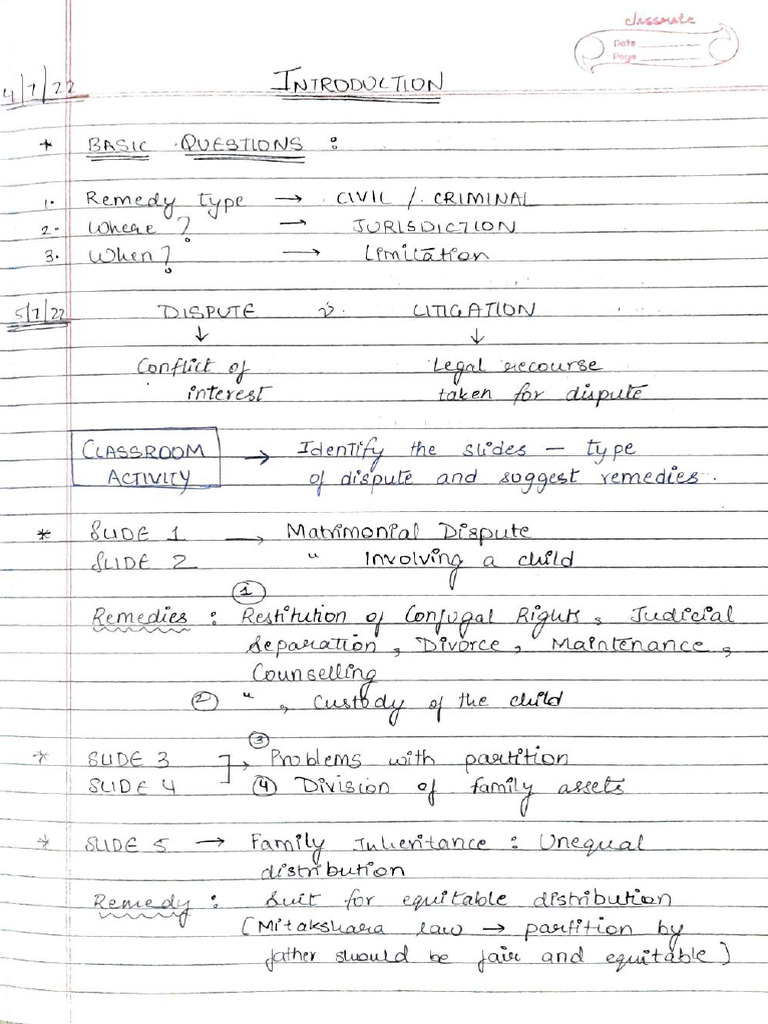 classmate
Date
Page
4/7/22 INTRODUCTION
* BASIC QUESTIONS :
1. Remedy type → CIVIL / CRIMINAL
2. Where? → JURISDICTION
3. When? → Limitation
5/7/22 DISPUTE v. LITIGATION
↓ ↓
Conflict of Legal recourse
interest taken for dispute
CLASSROOM → Identify the slides — type
ACTIVITY of dispute and suggest remedies.
* SLIDE 1 → Matrimonial Dispute
SLIDE 2 " Involving a child
①
Remedies : Restitution of Conjugal Rights, Judicial
Separation, Divorce, Maintenance,
Counselling
② " , Custody of the child
③
* SLIDE 3 ] → Problems with partition
SLIDE 4 ④ Division of family assets
* SLIDE 5 → Family Inheritance : Unequal
distribution
Remedy : Suit for equitable distribution
(Mitakshara law → partition by
father should be fair and equitable)